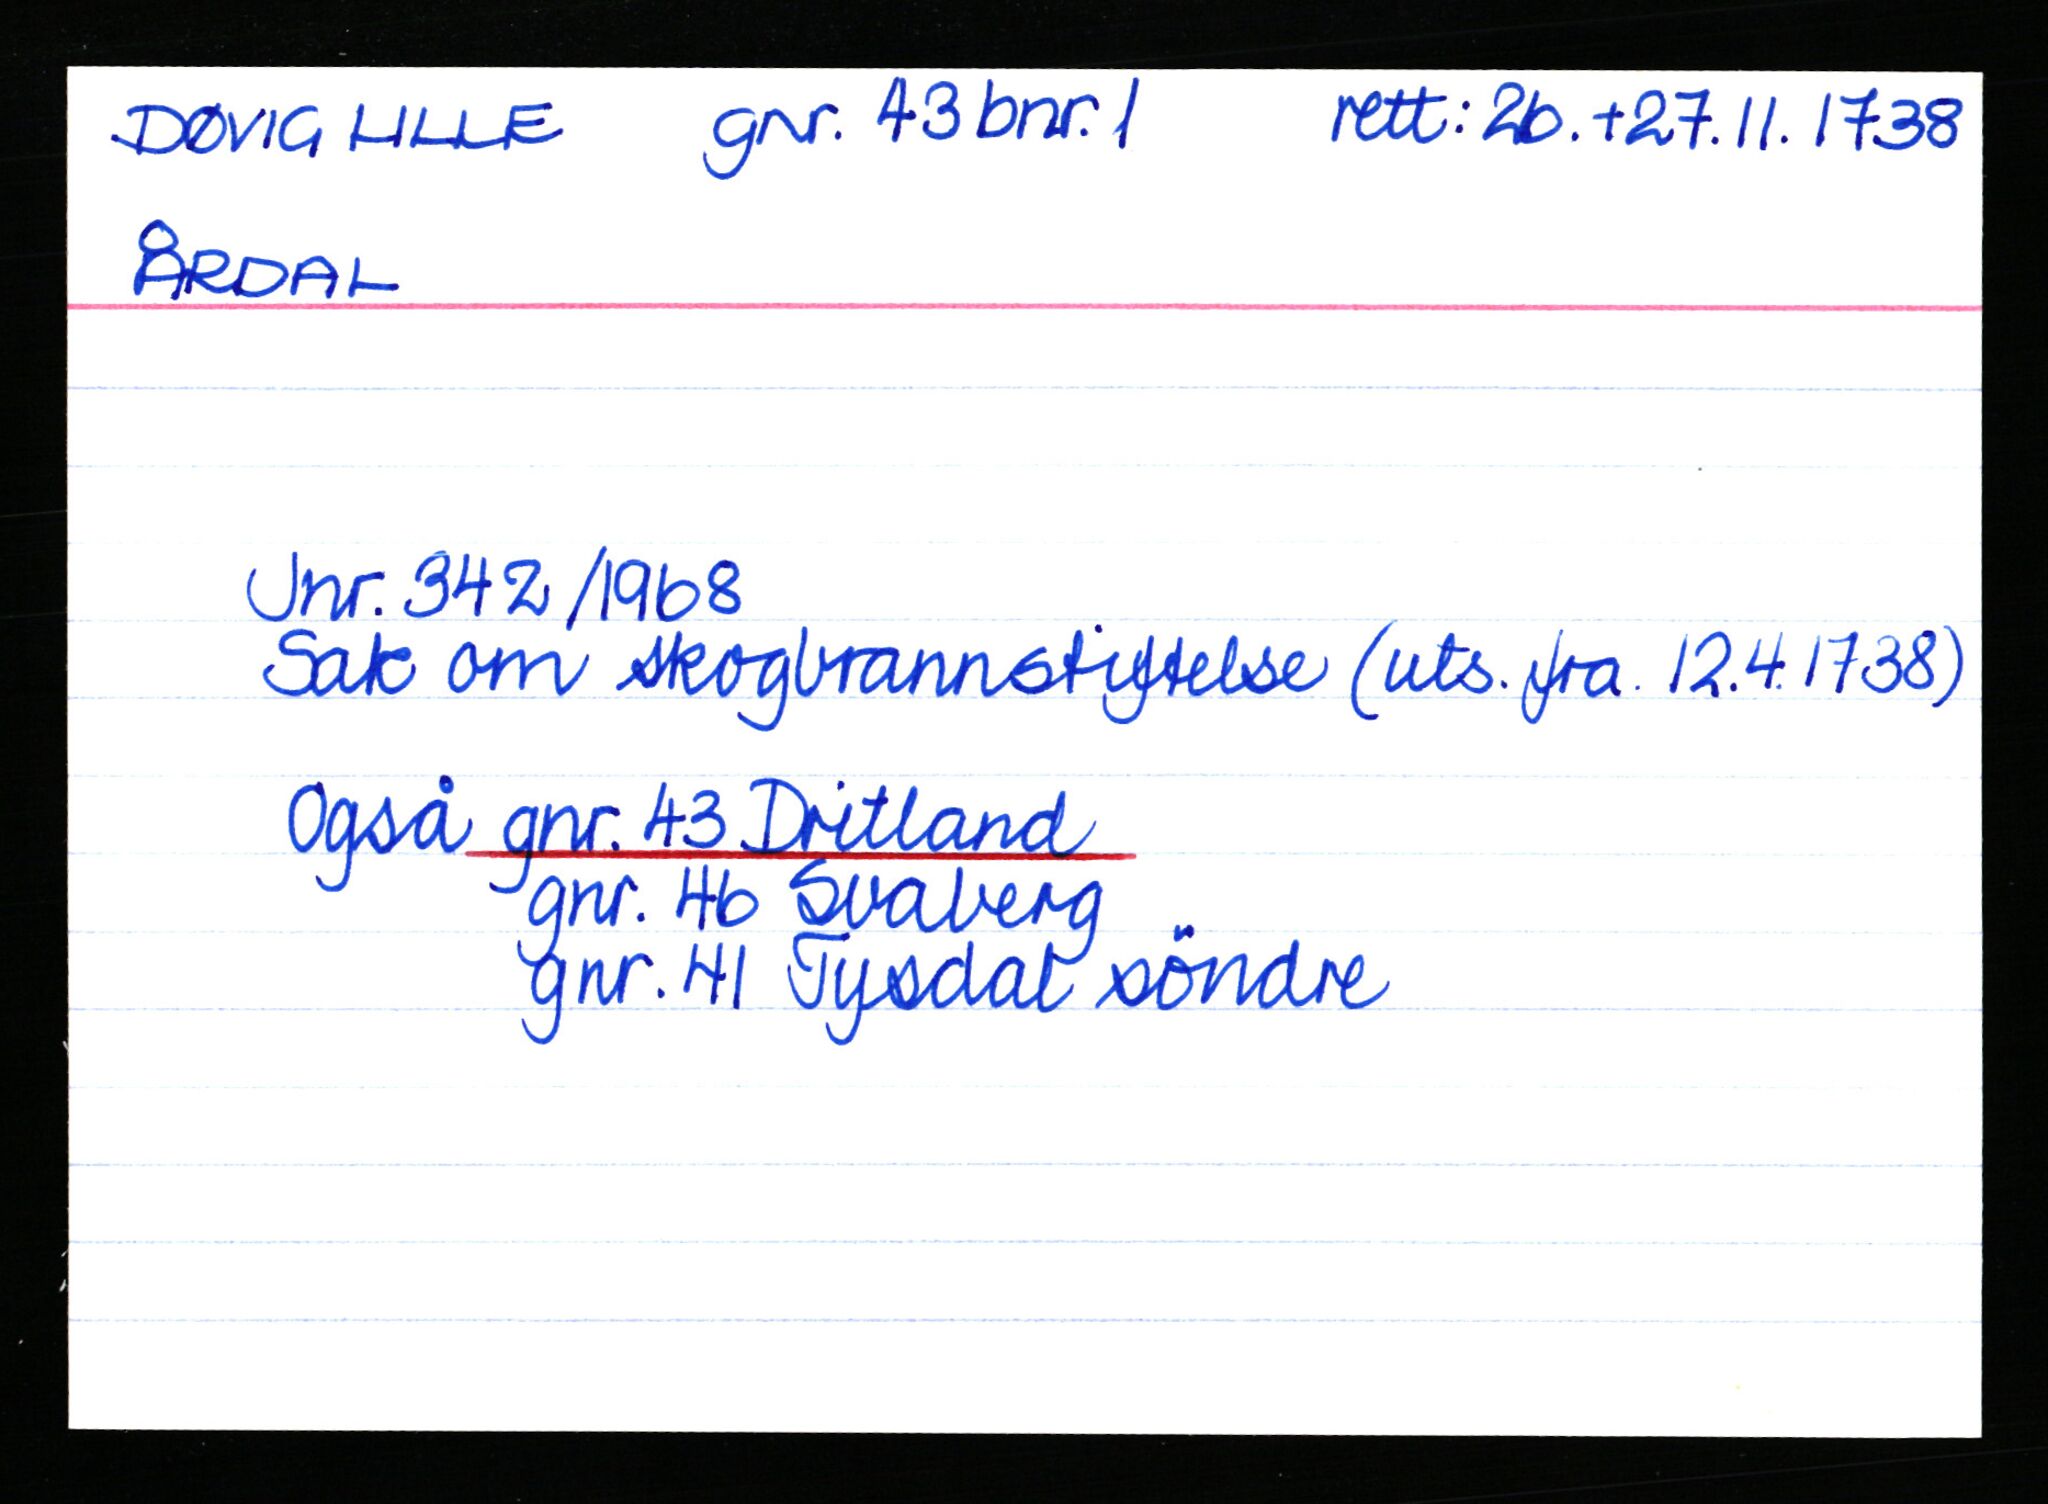 DØVIG LILLE gnr. 43 bnr. 1 rett: 26. + 27. 11. 1738
ÅRDAL
Jnr. 342 / 1968
Sak om skogbrannstiftelse (uts. fra. 12.4.1738)
Også gnr. 43 Dritland
gnr. 46 Svaberg
gnr. 41 Tysdal söndre